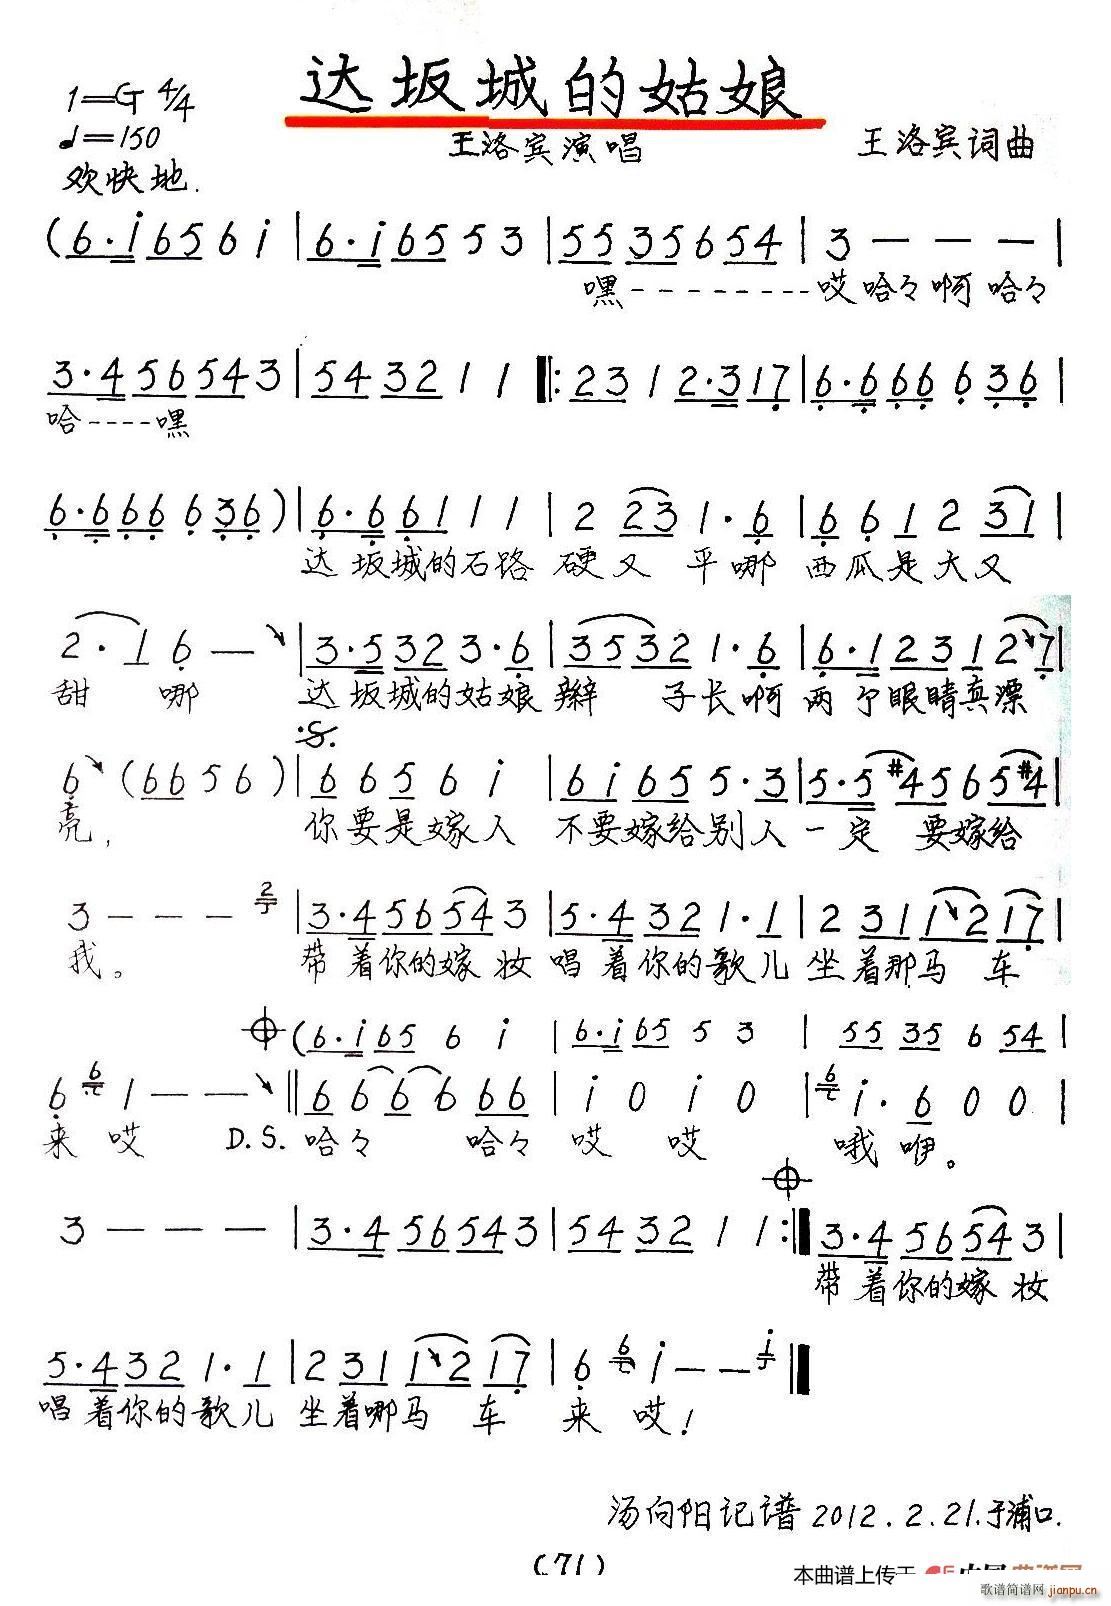 达坂城的姑娘
1=G 4/4
♩=150
欢快地.
王洛宾演唱
王洛宾词曲
(6·i 6 5 6 i | 6·i 6 5 5 3 | 5 5 3 5 6 5 4 | 3 — — — |
嘿--------哎哈々啊哈々
3·4 5 6 5 4 3 | 5 4 3 2 1 1 ‖: 2 3 1 2·3 1 7 | 6·6 6 6 6 3 6 |
哈----嘿
6·6 6 6 6 3 6 ) | 6·6 6 1 1 1 | 2 2 3 1·6 | 6 6 1 2 3 1 |
达坂城的石路 硬又 平哪 西瓜是大又
2·1 6 — | 3·5 3 2 3·6 | 3 5 3 2 1·6 | 6·1 2 3 1 2 7 |
甜 哪 达坂城的姑娘 辫 子长啊 两个眼睛真漂
·S·
6 (6 6 5 6 ) | 6 6 5 6 i | 6 i 6 5 5·3 | 5·5 #4 5 6 5 #4 |
亮, 你要是嫁人 不要嫁给别人 一定 要嫁给
3 — — — 2 | 3·4 5 6 5 4 3 | 5·4 3 2 1·1 | 2 3 1 1 2 1 7 |
我。 带着你的嫁妆 唱着你的歌儿 坐着那马 车
(6·i 6 5 6 i | 6·i 6 5 5 3 | 5 5 3 5 6 5 4 |
6 6 1 — — ‖ 6 6 6 6 6 6 | i 0 i 0 | 6 i·6 0 0 |
来 哎 D.S. 哈々 哈々 哎 哎 哦咿。
3 — — — | 3·4 5 6 5 4 3 | 5 4 3 2 1 1 :‖ 3·4 5 6 5 4 3 |
带着你的嫁妆
5·4 3 2 1·1 | 2 3 1 1 2 1 7 | 6 6 i — — i ‖
唱着你的歌儿 坐着哪马 车 来 哎!
汤向阳记谱 2012.2.21.于浦口.
(71)
本曲谱上传于
歌谱简谱网 jianpu.cn